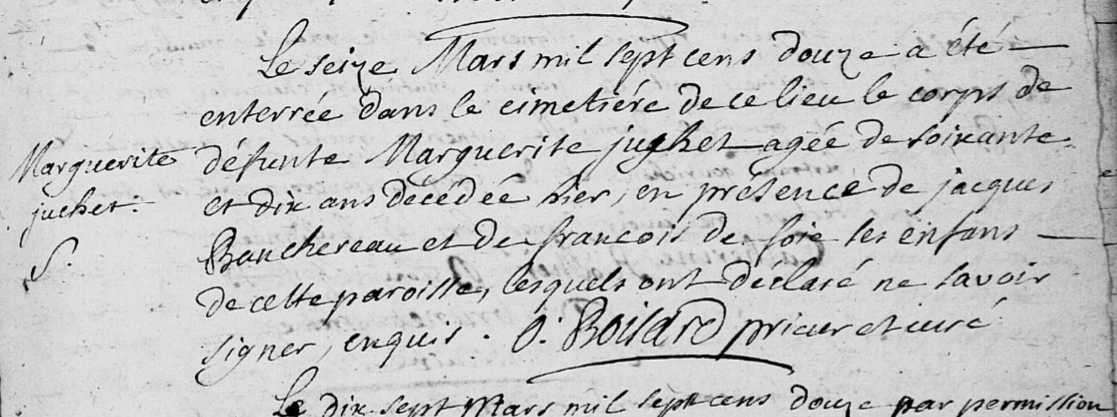 Le seize Mars mil sept cens douze a été
enterrée dans le cimetiére de ce lieu le corps de
Marguerite
juchet.
S
défunte Marguerite jughet agée de soixante
et dix ans decédée hier, en présence de jacques
Banchereau et de francois de foie ses enfans
de cette paroisse, lesquels ont déclaré ne savoir
signer, enquis. O. Boisard prieur et curé
Le dix sept Mars mil sept cens douze par permission